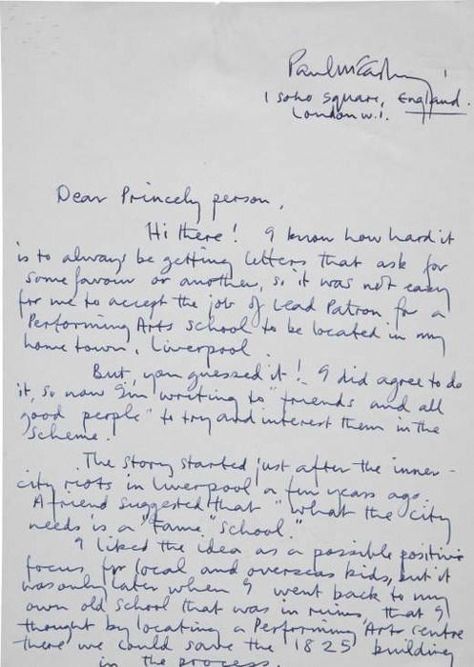 Paul McCartney
1 Soho Square, England.
London W.1.
Dear Princely person,
Hi there! I know how hard it
is to always be getting letters that ask for
some favour or another, so it was not easy
for me to accept the job of Lead Patron for a
Performing Arts school to be located in my
home town, Liverpool.
But, you guessed it! I did agree to do
it, so now I'm writing to "friends and all
good people" to try and interest them in the
scheme.
The story started just after the inner-
city riots in Liverpool a few years ago.
A friend suggested that "what the city
needs is a "Fame" School."
I liked the idea as a possible positive
focus for local and overseas kids, but it
was only later when I went back to my
own old school that was in ruins, that I
thought by locating a Performing Arts centre
there we could save the 1825 building
in the process.